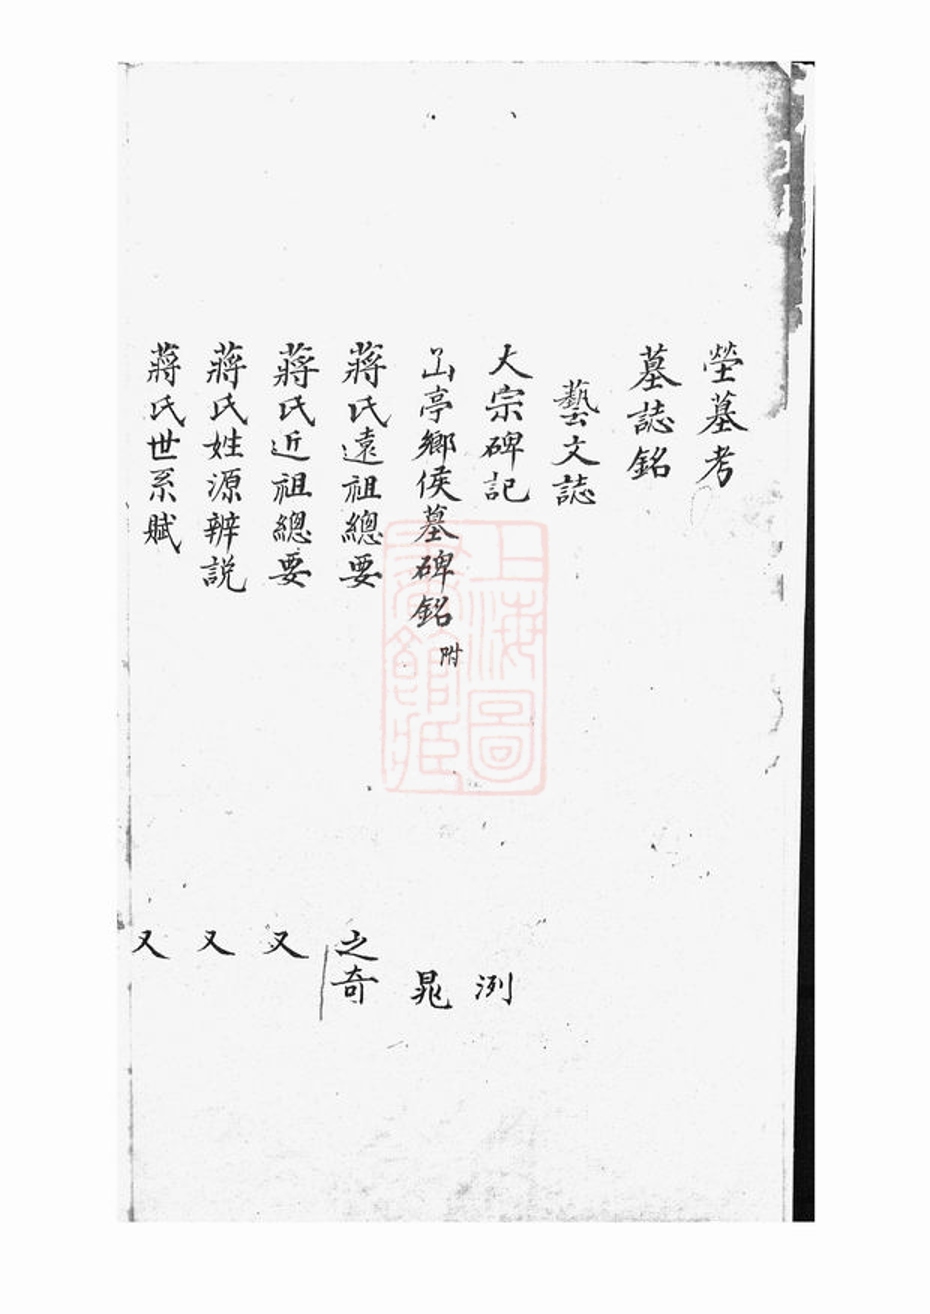 塋墓考
墓誌銘
藝文誌
大宗碑記 洌
亭鄉侯墓碑銘附 晁
蔣氏遠祖總要 之奇
蔣氏近祖總要 又
蔣氏姓源辨説 又
蔣氏世系賦 又
上海圖
書館藏